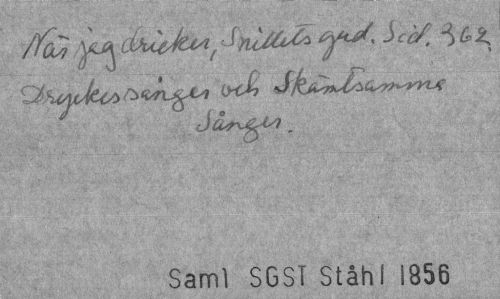 När jag dricker, Snillets gud. Sid. 362
Dryckessånger och Skämtsamma
Sånger.
Saml SGST Ståhl 1856